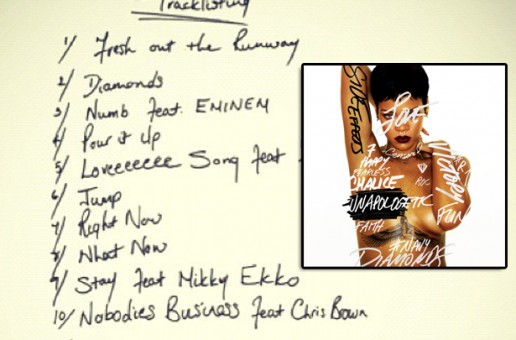 Tracklisting
1/ Fresh out the Runway
2/ Diamonds
3/ Numb feat. EMINEM
4/ Pour it Up
5/ Loveeeeeee Song feat
6/ Jump
7/ Right Now
8/ What Now
9/ Stay feat Mikky Ekko
10/ Nobodies Business feat Chris Brown
SIDE EFFECTS
Love
7
Censored
HAPPY
FEARLESS
ROC
Victory
CHALICE
UNAPOLOGETIC
FUN
FAITH
#NAVY
DIAMONDS